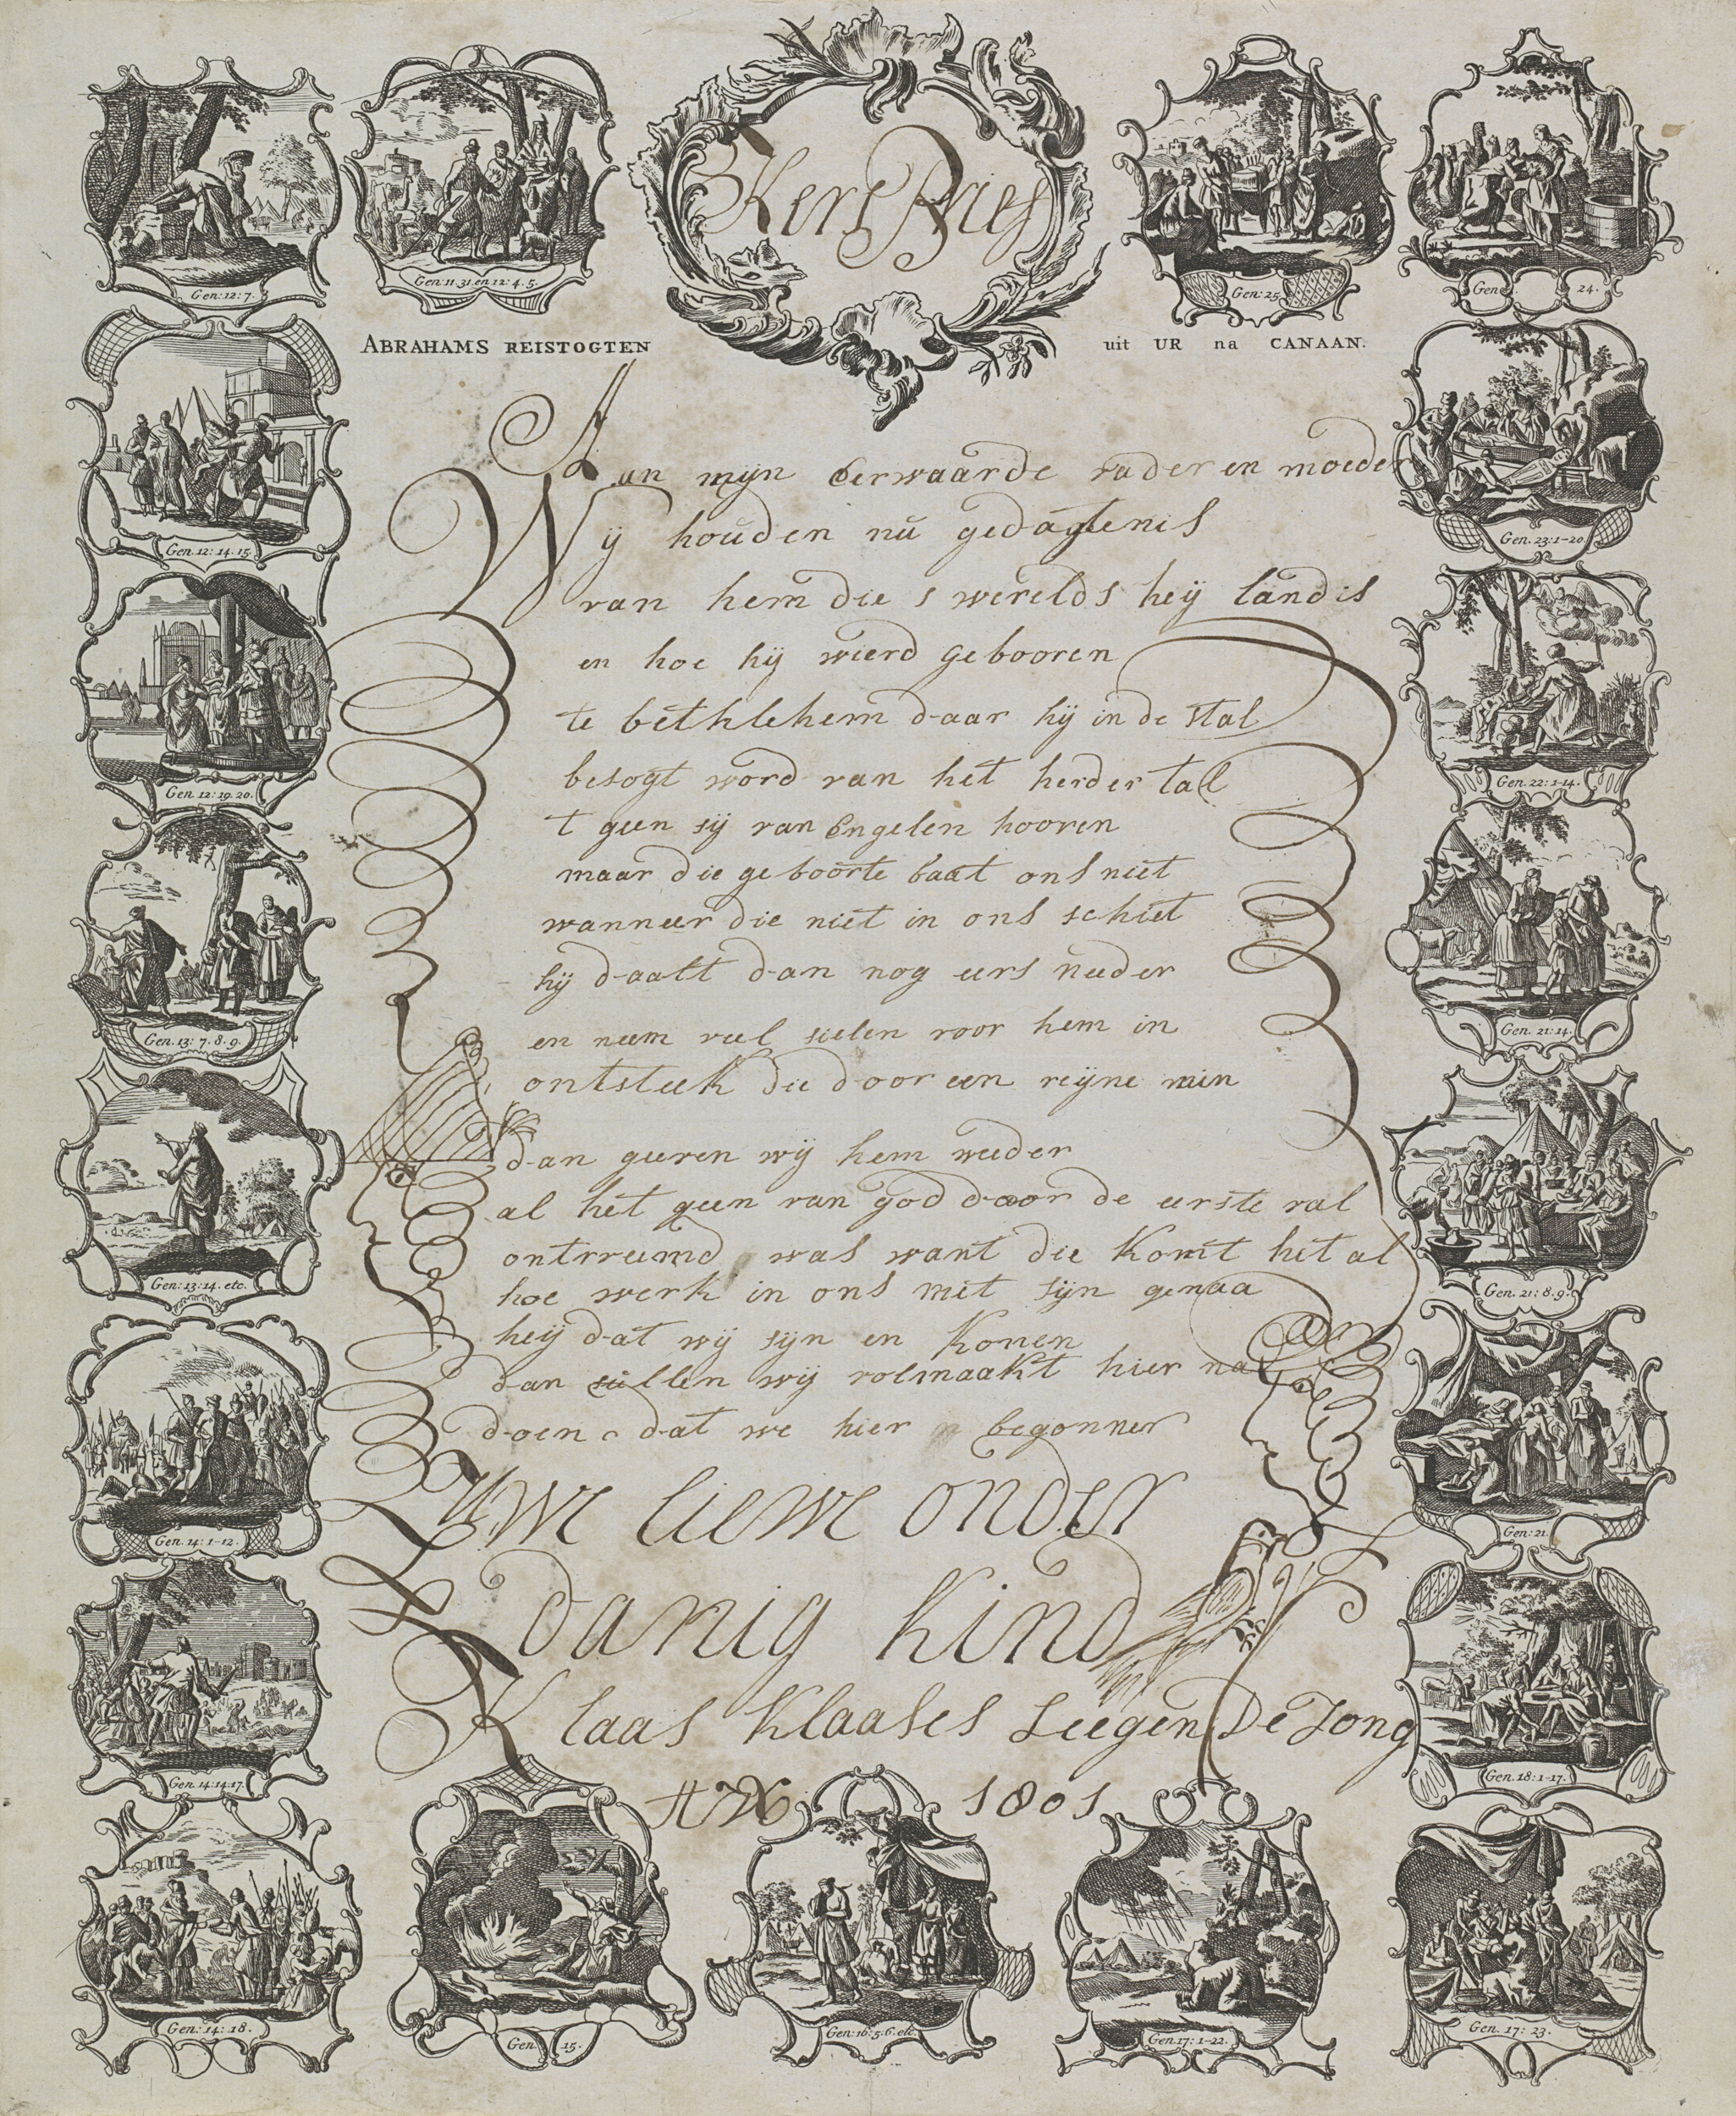 Kers Brief
ABRAHAMS REISTOGTEN uit UR na CANAAN.
Aan mijn Eerwaarde vader en moeder
Wij houden nu gedagtenis
van hem die s werelds heij land is
en hoe hij wierd gebooren
te bethlehem daar hij in de stal
besogt word van het herder tal
t geen sij van Engelen hooren
maar die geboorte baat ons niet
wanneer die niet in ons schiet
hij daalt dan nog eers neder
en neem veel sielen voor hem in
ontsteek die door een reijne min
dan geeven wij hem weeder
al het geen van god door de eerste val
ontvreemd was want die Komt het al
hoe werk in ons met sijn genaa
heij dat wij sijn en Konen
dan sullen wij volmaakt hier na
doen dat we hier begonnen
Uwe liewe onder
danig kind
Klaas Klaases Leegen De Jong
1801
Gen: 12: 7.
Gen: 11. 31. en 12: 4. 5.
Gen: 25.
Gen: 24.
Gen. 12: 14. 15.
Gen. 23: 1-20.
Gen. 12: 19. 20.
Gen. 22: 1-14.
Gen. 13: 7. 8. 9.
Gen. 21: 14.
Gen: 13: 14. etc.
Gen. 21: 8. 9.
Gen. 14: 1-12.
Gen: 21.
Gen. 14: 14. 17.
Gen. 18: 1-17.
Gen: 14: 18.
Gen. 15.
Gen: 16: 5. 6. etc.
Gen. 17: 1-22.
Gen. 17: 23.